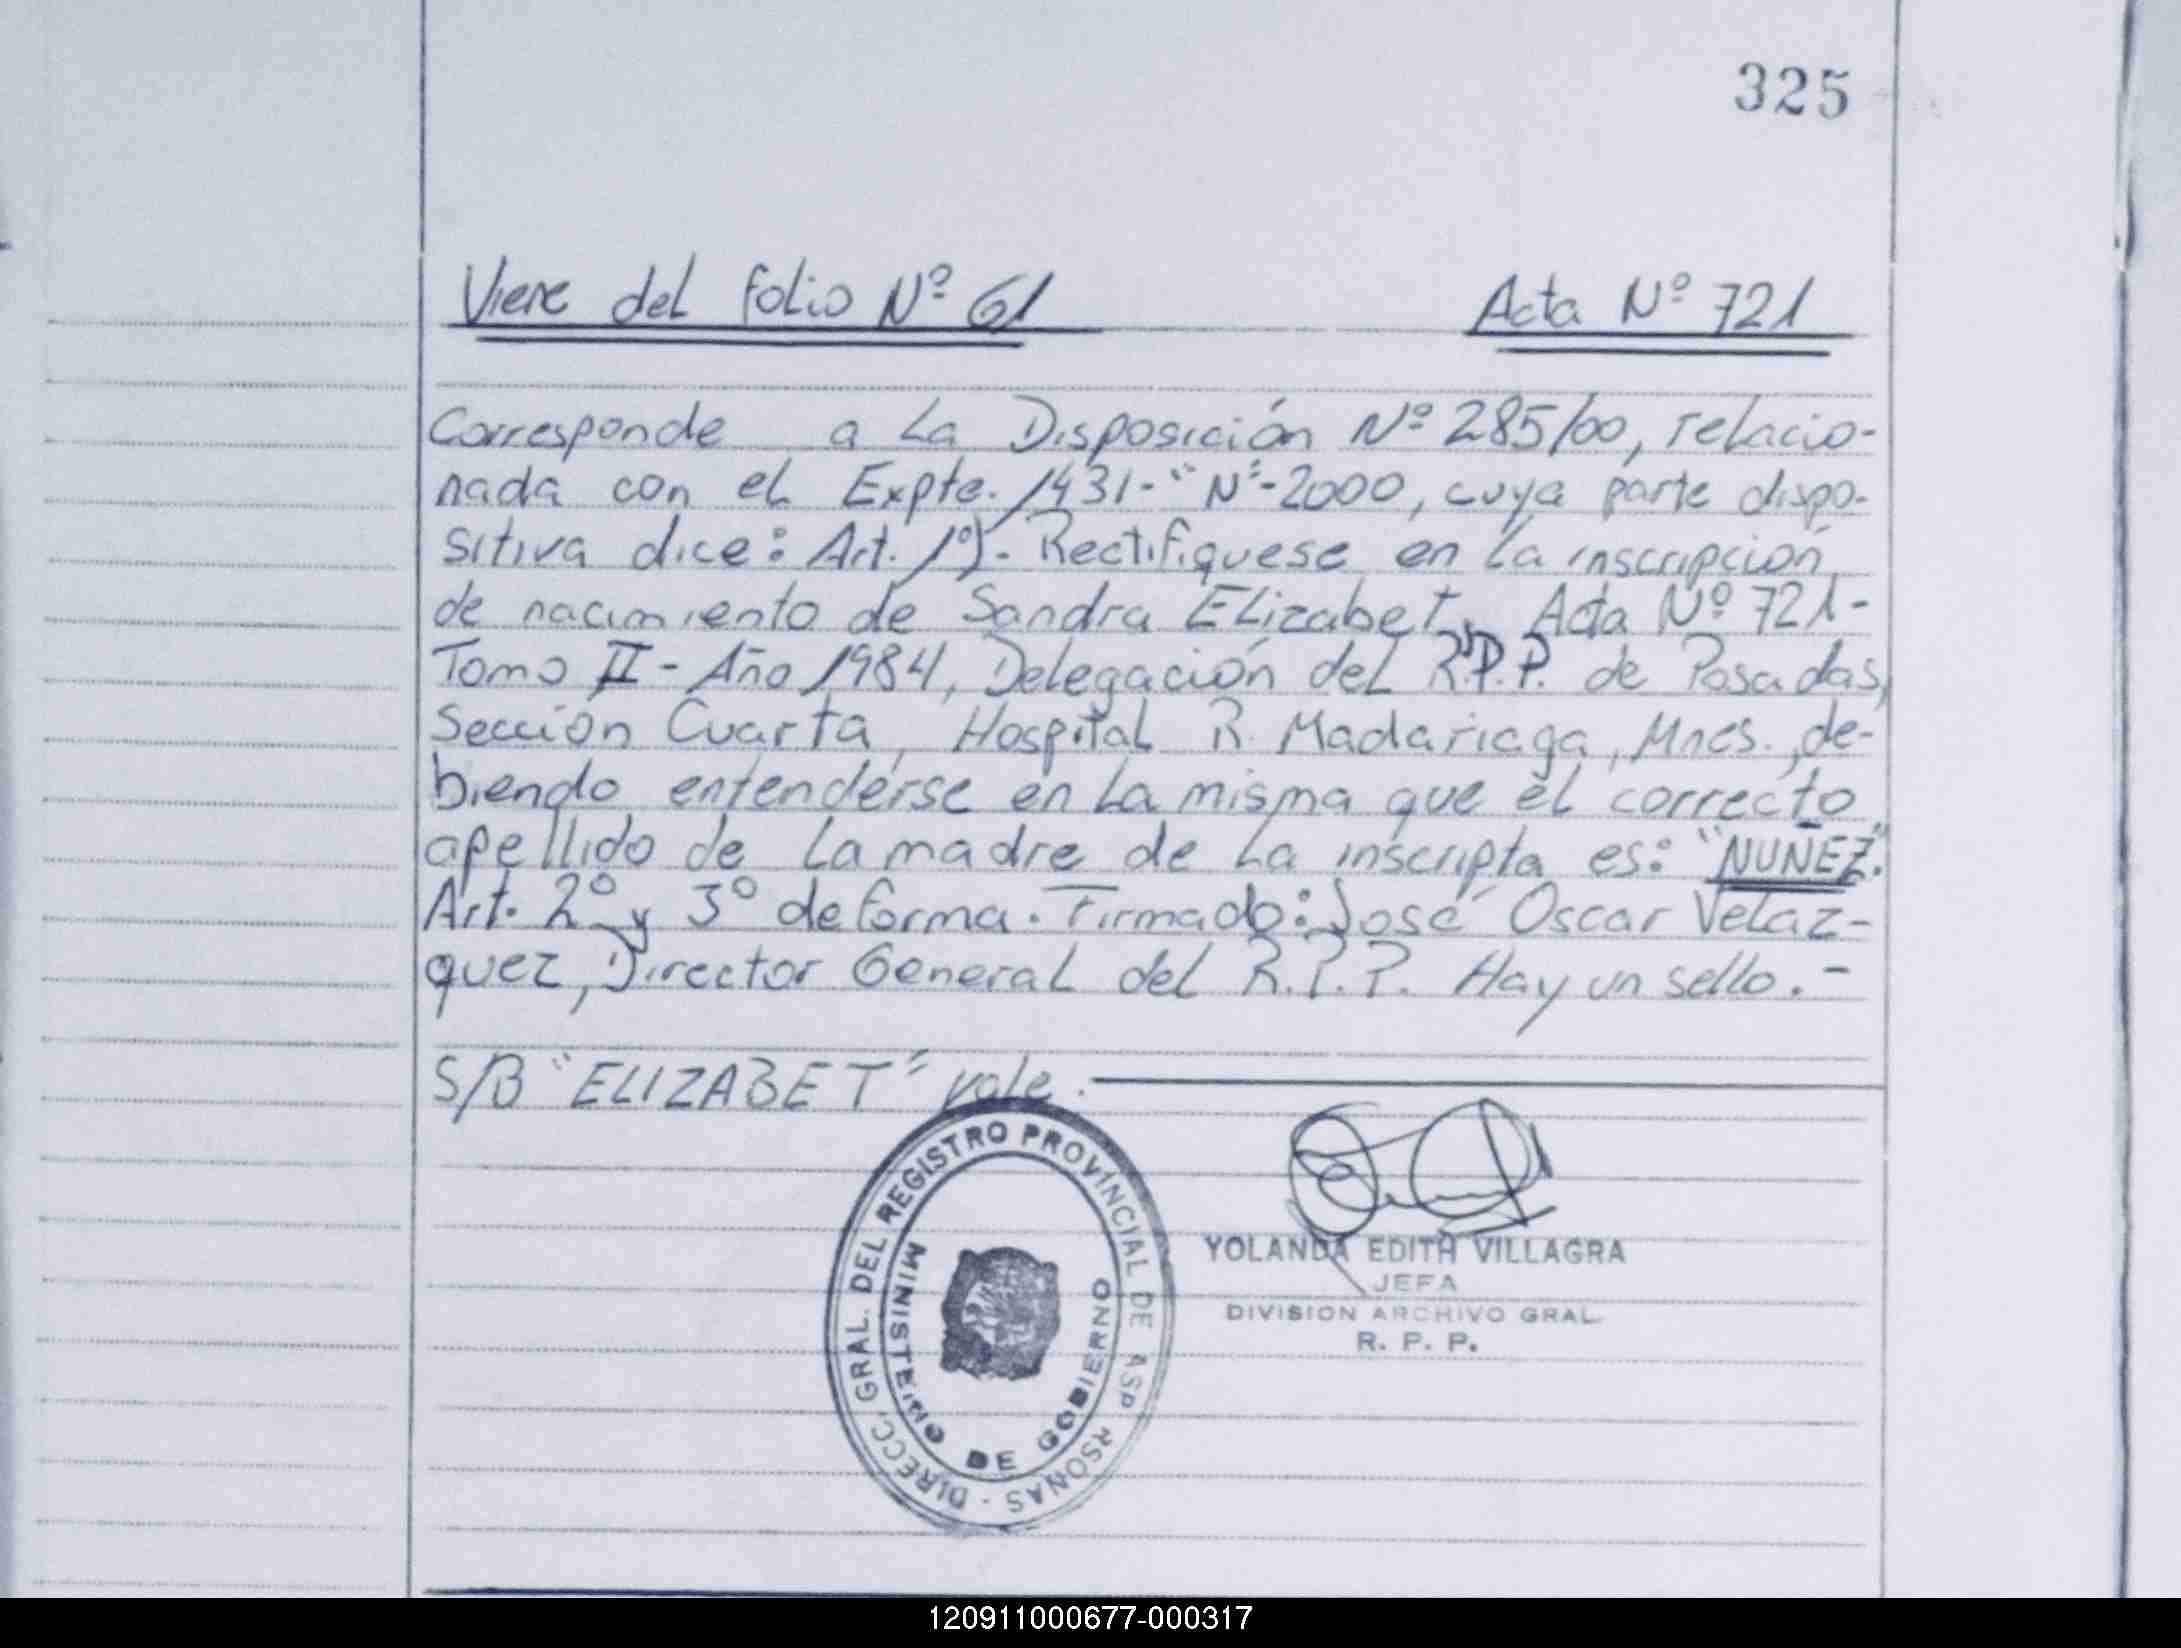 325
Viene del folio Nº 61 Acta Nº 721
Corresponde a la Disposición Nº 285/00, relacio-
nada con el Expte. 1431-"N"-2000, cuya parte dispo-
sitiva dice: Art. 1º)- Rectifiquese en la inscripción
de nacimiento de Sandra Elizabet, Acta Nº 721-
Tomo II - Año 1984, Delegación del R.P.P. de Posadas,
Sección Cuarta, Hospital R. Madariaga, Mnes., de-
biendo entenderse en la misma que el correcto
apellido de la madre de la inscripta es: "NUÑEZ".
Art. 2º y 3º de forma. Firmado: José Oscar Velaz-
quez, Director General del R.P.P. Hay un sello.-
S/B "ELIZABET" vale.
DIRECC. GRAL. DEL REGISTRO PROVINCIAL DE ASP RSONAS -
MINISTERIO DE GOBIERNO
YOLANDA EDITH VILLAGRA
JEFA
DIVISION ARCHIVO GRAL.
R. P. P.
120911000677-000317